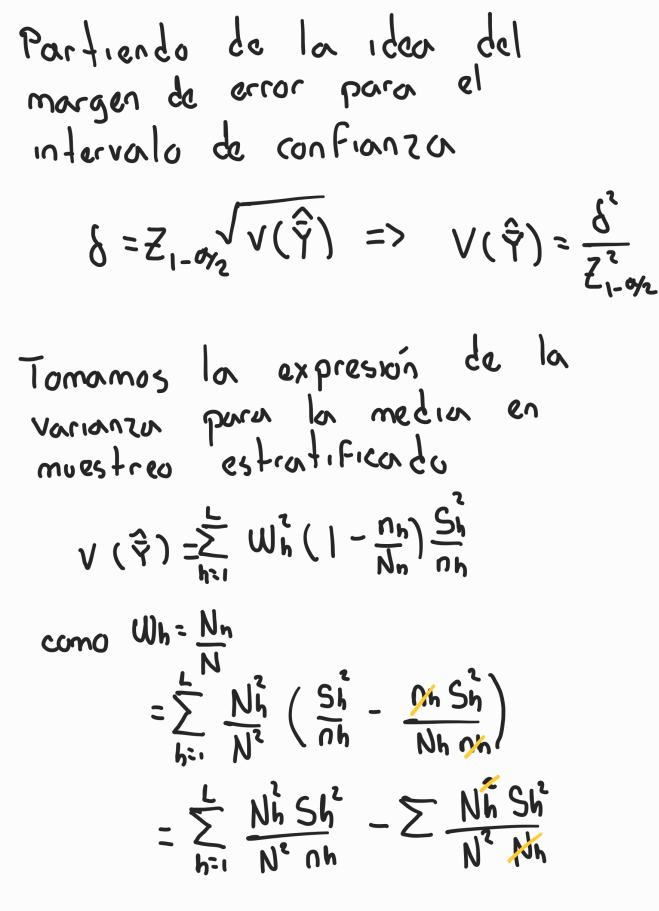 Partiendo de la idea del
margen de error para el
intervalo de confianza
δ = Z_{1-α/2} √V(\hat{\bar{Y}}) => V(\hat{\bar{Y}}) = δ² / Z²_{1-α/2}
Tomamos la expresión de la
varianza para la media en
muestreo estratificado
V(\hat{\bar{Y}}) = Σ_{h=1}^{L} W_h² (1 - n_h/N_h) S_h²/n_h
como W_h = N_h/N
= Σ_{h=1}^{L} N_h²/N² (S_h²/n_h - n_h S_h²/(N_h n_h))
= Σ_{h=1}^{L} N_h² S_h²/(N² n_h) - Σ N_h² S_h²/(N² N_h)